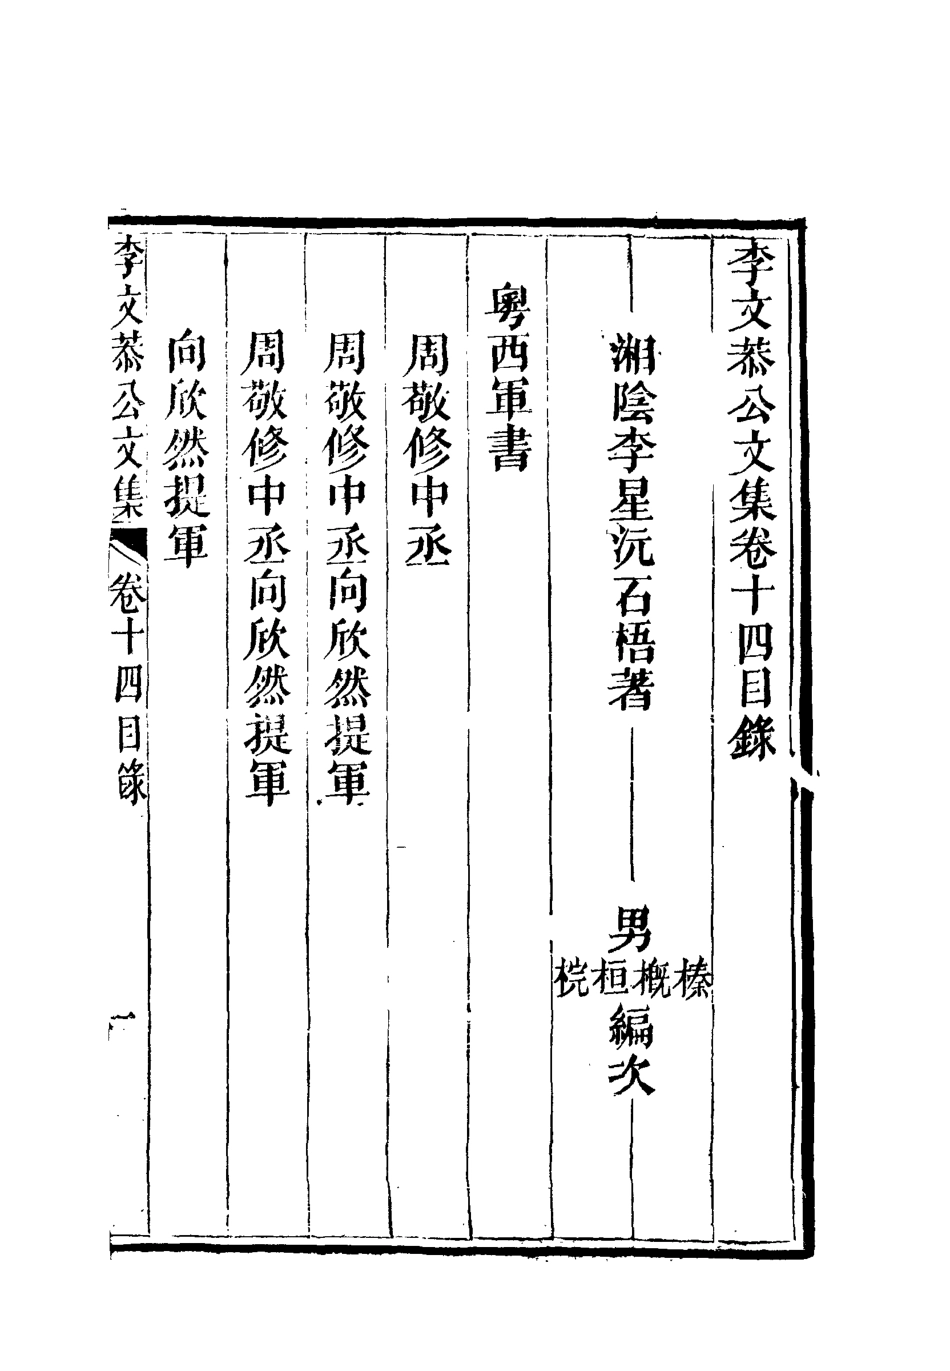 李文恭公文集卷十四目錄
湘陰李星沅石梧著
男榛概桓梡編次
粤西軍書
周敬修中丞
周敬修中丞向欣然提軍
周敬修中丞向欣然提軍
向欣然提軍
李文恭公文集
卷十四目錄
一